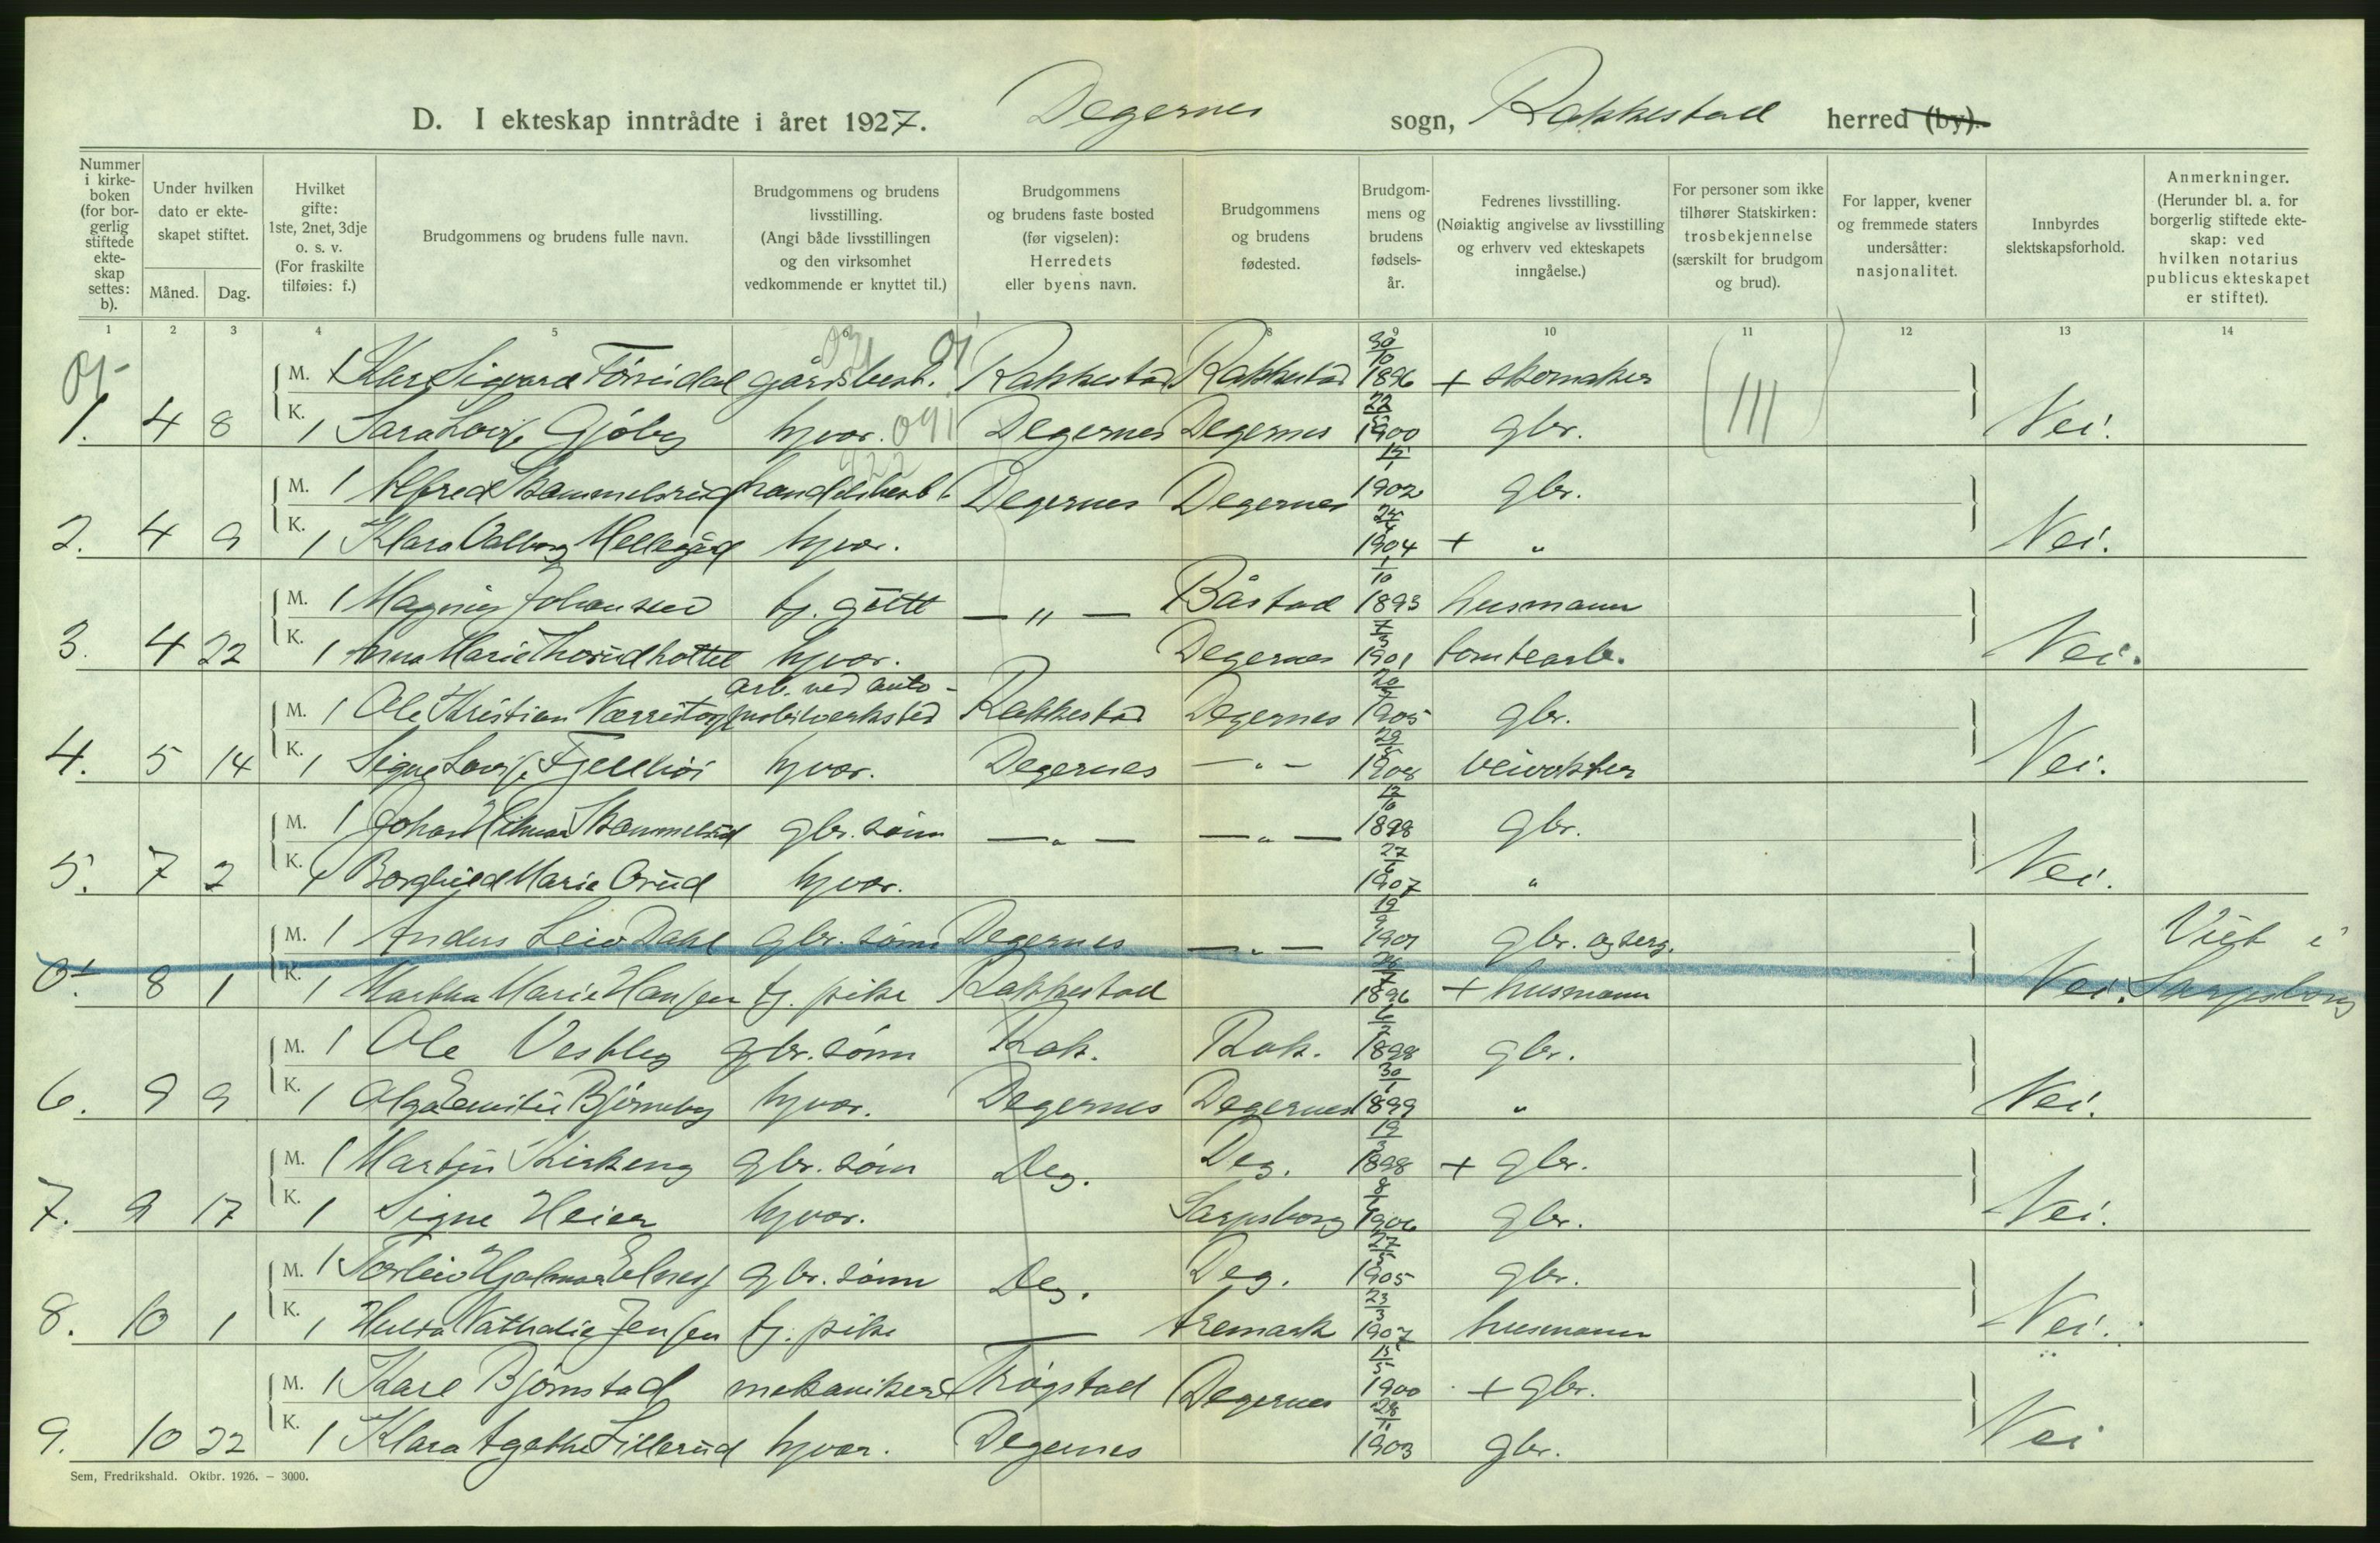 D. I ekteskap inntrådte i året 1927. Degernes sogn, Rakkestad herred (by).
Nummer i kirkeboken (for borgerlig stiftede ekteskap settes: b).
Under hvilken dato er ekteskapet stiftet.
Måned. Dag.
Hvilket gifte: 1ste, 2net, 3dje o. s. v. (For fraskilte tilføies: f.)
Brudgommens og brudens fulle navn.
Brudgommens og brudens livsstilling. (Angi både livsstillingen og den virksomhet vedkommende er knyttet til.)
Brudgommens og brudens faste bosted (før vigselen): Herredets eller byens navn.
Brudgommens og brudens fødested.
Brudgommens og brudens fødselsår.
Fedrenes livsstilling. (Nøiaktig angivelse av livsstilling og erhverv ved ekteskapets inngåelse.)
For personer som ikke tilhører Statskirken: trosbekjennelse (særskilt for brudgom og brud).
For lapper, kvener og fremmede staters undersåtter: nasjonalitet.
Innbyrdes slektskapsforhold.
Anmerkninger. (Herunder bl. a. for borgerlig stiftede ekteskap: ved hvilken notarius publicus ekteskapet er stiftet).
1 2 3 4 5 6 8 9 10 11 12 13 14
M. 1 Sigvard gårdsbest. Rakkestad Rakkestad 30/10 1896 + skomaker
1. 4 8 K. 1 Sara Lovise Gjøby hjvær. 091 Degernes Degernes 1900 gbr. Nei.
M. 1 Alfred Skammelsrud handelsbest. Degernes Degernes 15/1 1902 gbr.
2. 4 9 K. 1 Klara Valborg Mellegård hjvær. 1904 + " Nei.
M. 1 Magnus Johansen tj. gutt — " — Båstad 1/10 1893 husmann
3. 4 22 K. 1 Anna Marie hjvær. Degernes 7/3 1901 tomtearb. Nei.
arb. ved auto-
M. 1 Ole Kristian mobilverksted Rakkestad Degernes 1905 gbr.
4. 5 14 K. 1 Signe Lovise hjvær. Degernes — " — 1908 veivokter Nei.
M. 1 Johan Hilmar Skammelsrud gbr. sønn — " — — " — 12/10 1898 gbr.
5. 7 2 K. 1 Borghild Marie hjvær. 27/6 1907 " Nei.
M. 1 Anders Leiv Dahl gbr. sønn Degernes — " — 19/9 1901 gbr. og serg. Viet i
0+ 8 1 K. 1 Martha Marie Hansen tj. pike Rakkestad 1896 + husmann Nei. Sarpsborg
M. 1 Ole Vestby gbr. sønn Rak. Rak. 1898 gbr.
6. 9 9 K. 1 Olga Emilie Bjørneby hjvær. Degernes Degernes 30/1 1899 " Nei.
M. 1 Martin Kirkeng gbr. sønn Deg. Deg. 19/3 1898 + gbr.
7. 9 17 K. 1 Signe Heier hjvær. Sarpsborg 1906 gbr. Nei.
M. 1 Torleiv Hjalmar gbr. sønn Deg. Deg. 27/5 1905 gbr.
8. 10 1 K. 1 Hulda Nathalie Jensen tj. pike — Aremark 23/3 1907 husmann Nei.
M. 1 Kare Bjørnstad mekaniker Trøgstad Degernes 15/5 1900 + gbr.
9. 10 22 K. 1 Klara Agathe Lillerud hjvær. Degernes 1903 gbr. Nei
Sem, Fredrikshald. Oktbr. 1926. – 3000.